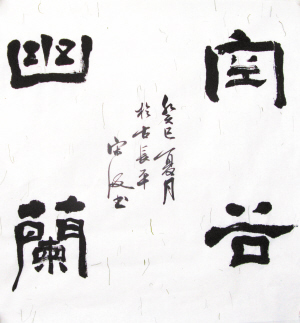 空谷
幽蘭
癸巳夏月
於古長平
宋书